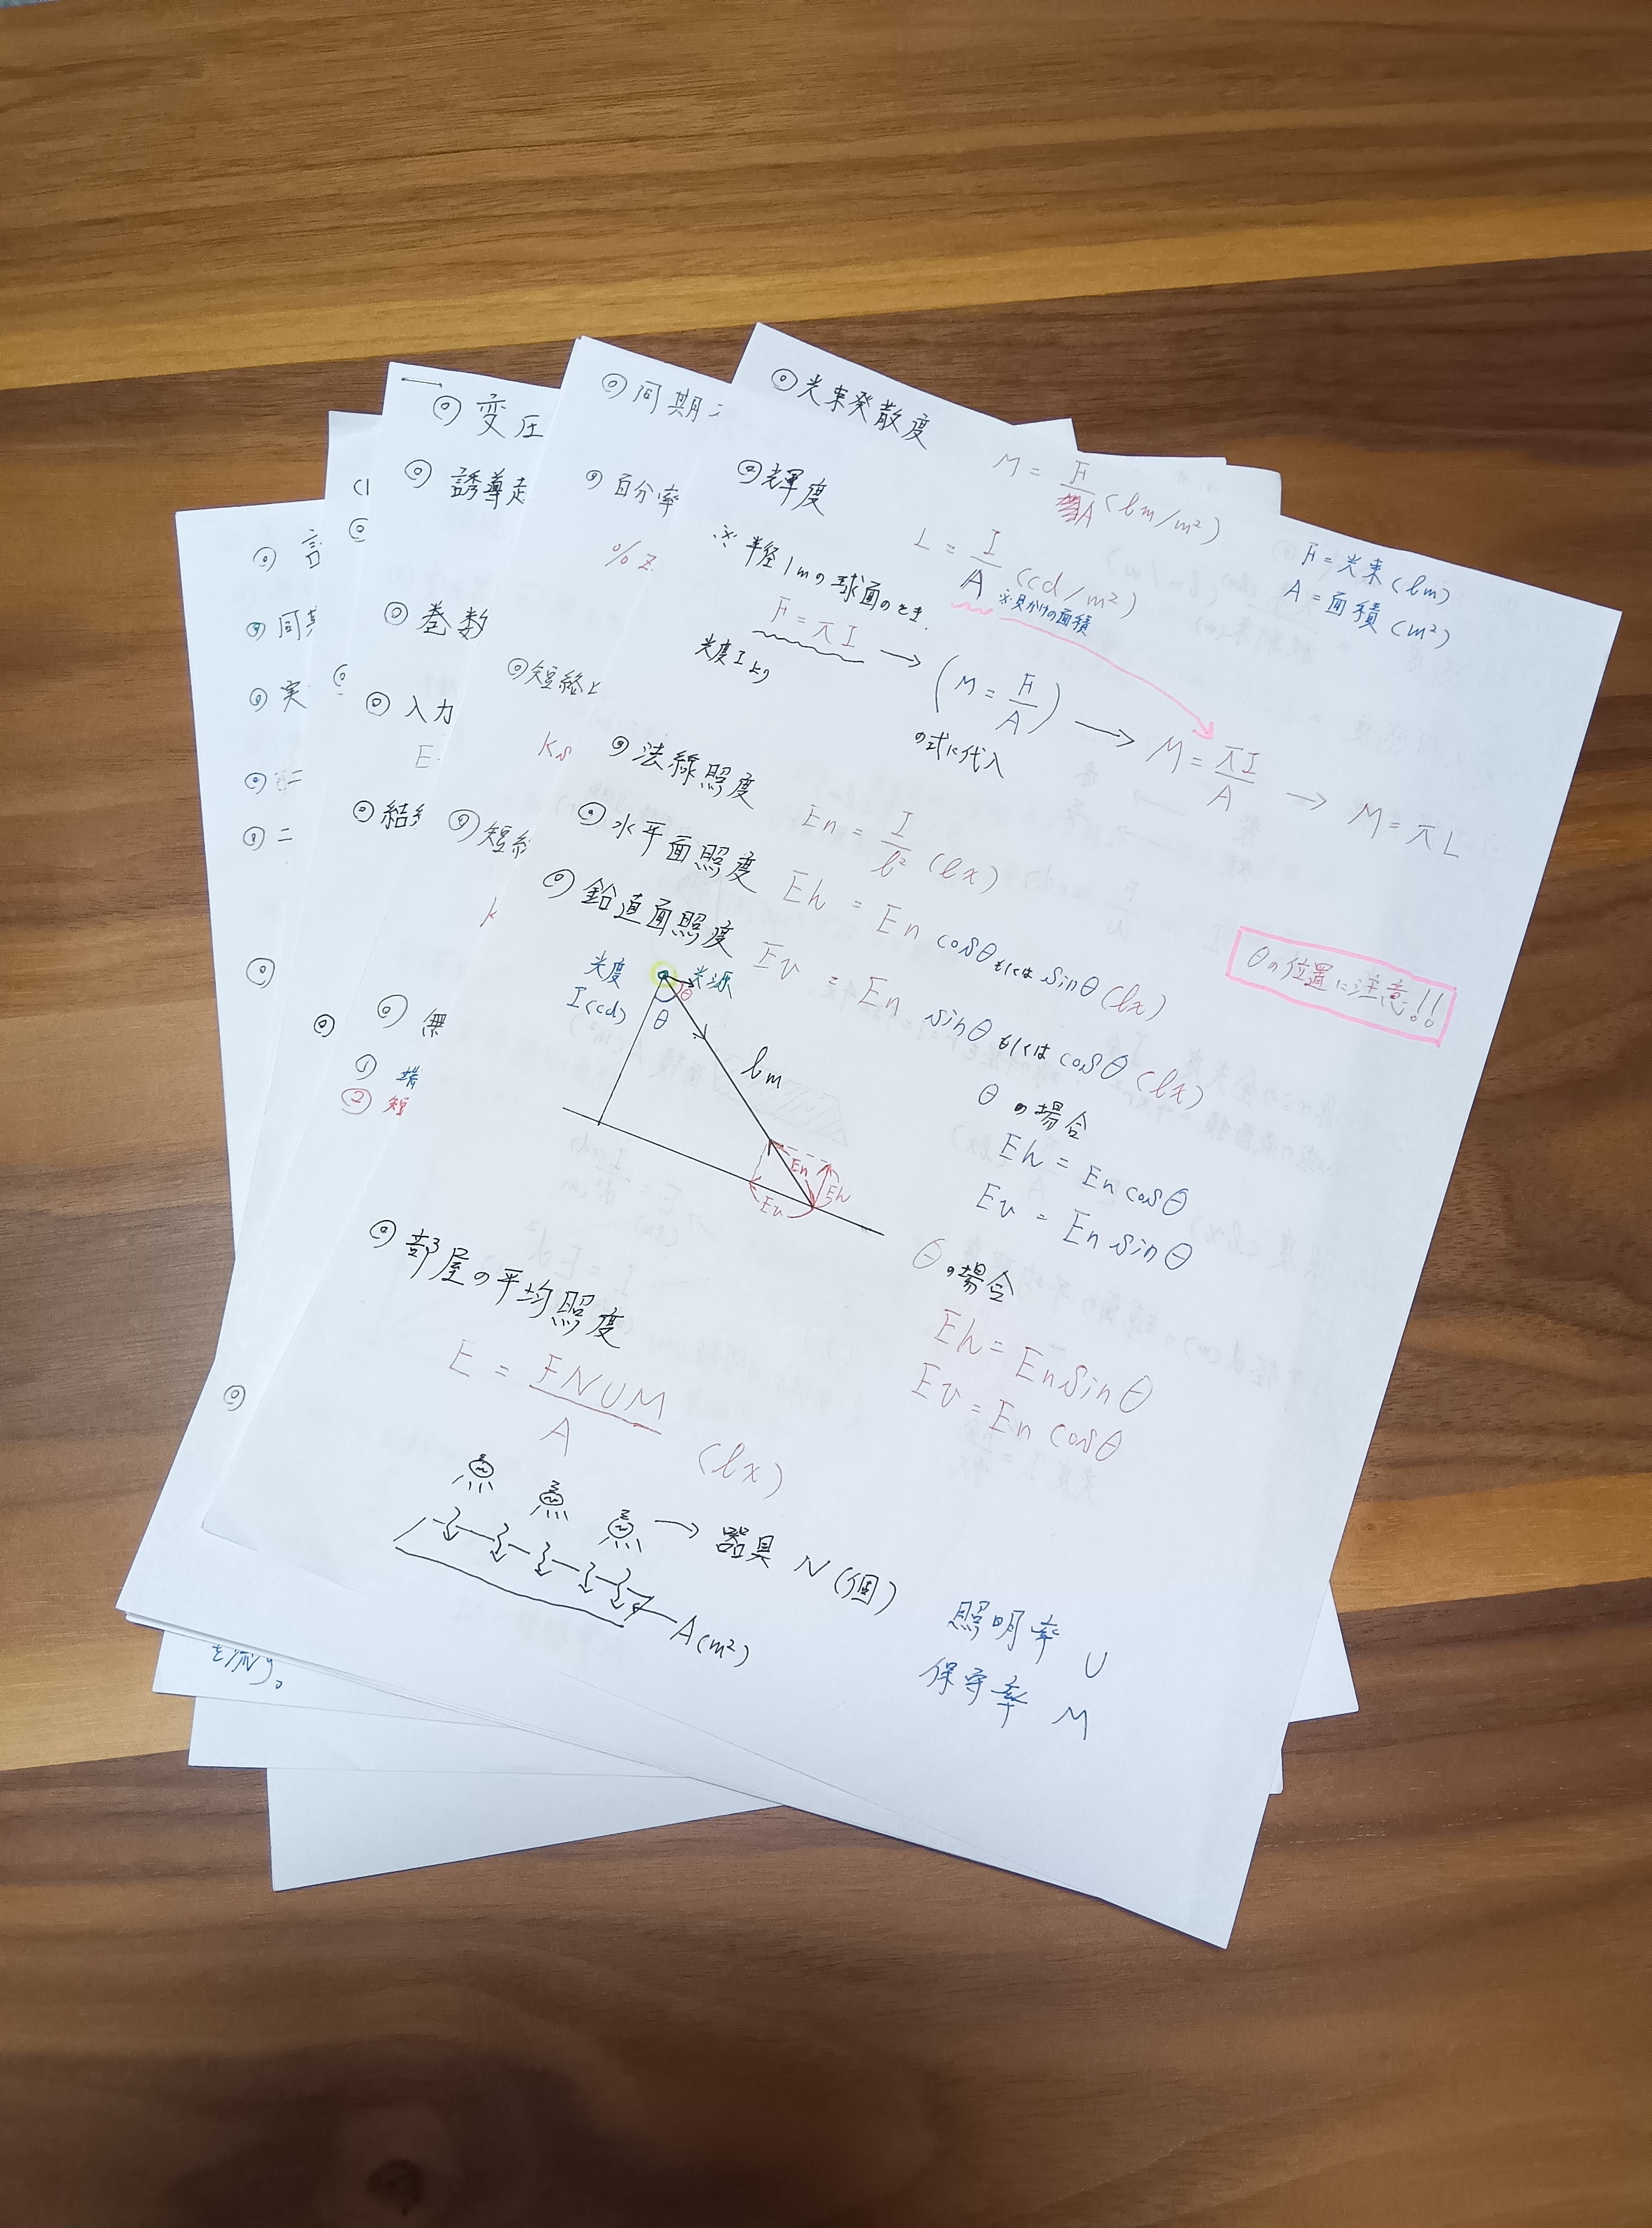 ◎光束発散度
M = F/A (lm/m²)
F = 光束 (lm)
A = 面積 (m²)
◎輝度
L = I/A (cd/m²)
※見かけの面積
※ 半径1mの球面のとき.
F = πI
光度Iより
→ (M = F/A) → M = πI/A → M = πL
の式に代入
◎法線照度
En = I/l² (lx)
◎水平面照度 Eh = En cosθ もしくは sinθ (lx)
◎鉛直面照度 Ev = En sinθ もしくは cosθ (lx)
θの位置に注意!!
光度
I (cd)
光源
θ
θ
lm
En
Eh
Ev
θの場合
Eh = En cosθ
Ev = En sinθ
θの場合
Eh = En sinθ
Ev = En cosθ
◎部屋の平均照度
E = FNUM/A (lx)
→ 器具 N (個)
A (m²)
照明率 U
保守率 M
◎同期
◎百分率
%Z
◎短絡
Ks
◎短絡
k
◎変圧
◎誘導起
◎巻数
◎入力
E
◎結
◎無
①
② 短
◎同期
◎実
◎二
◎二